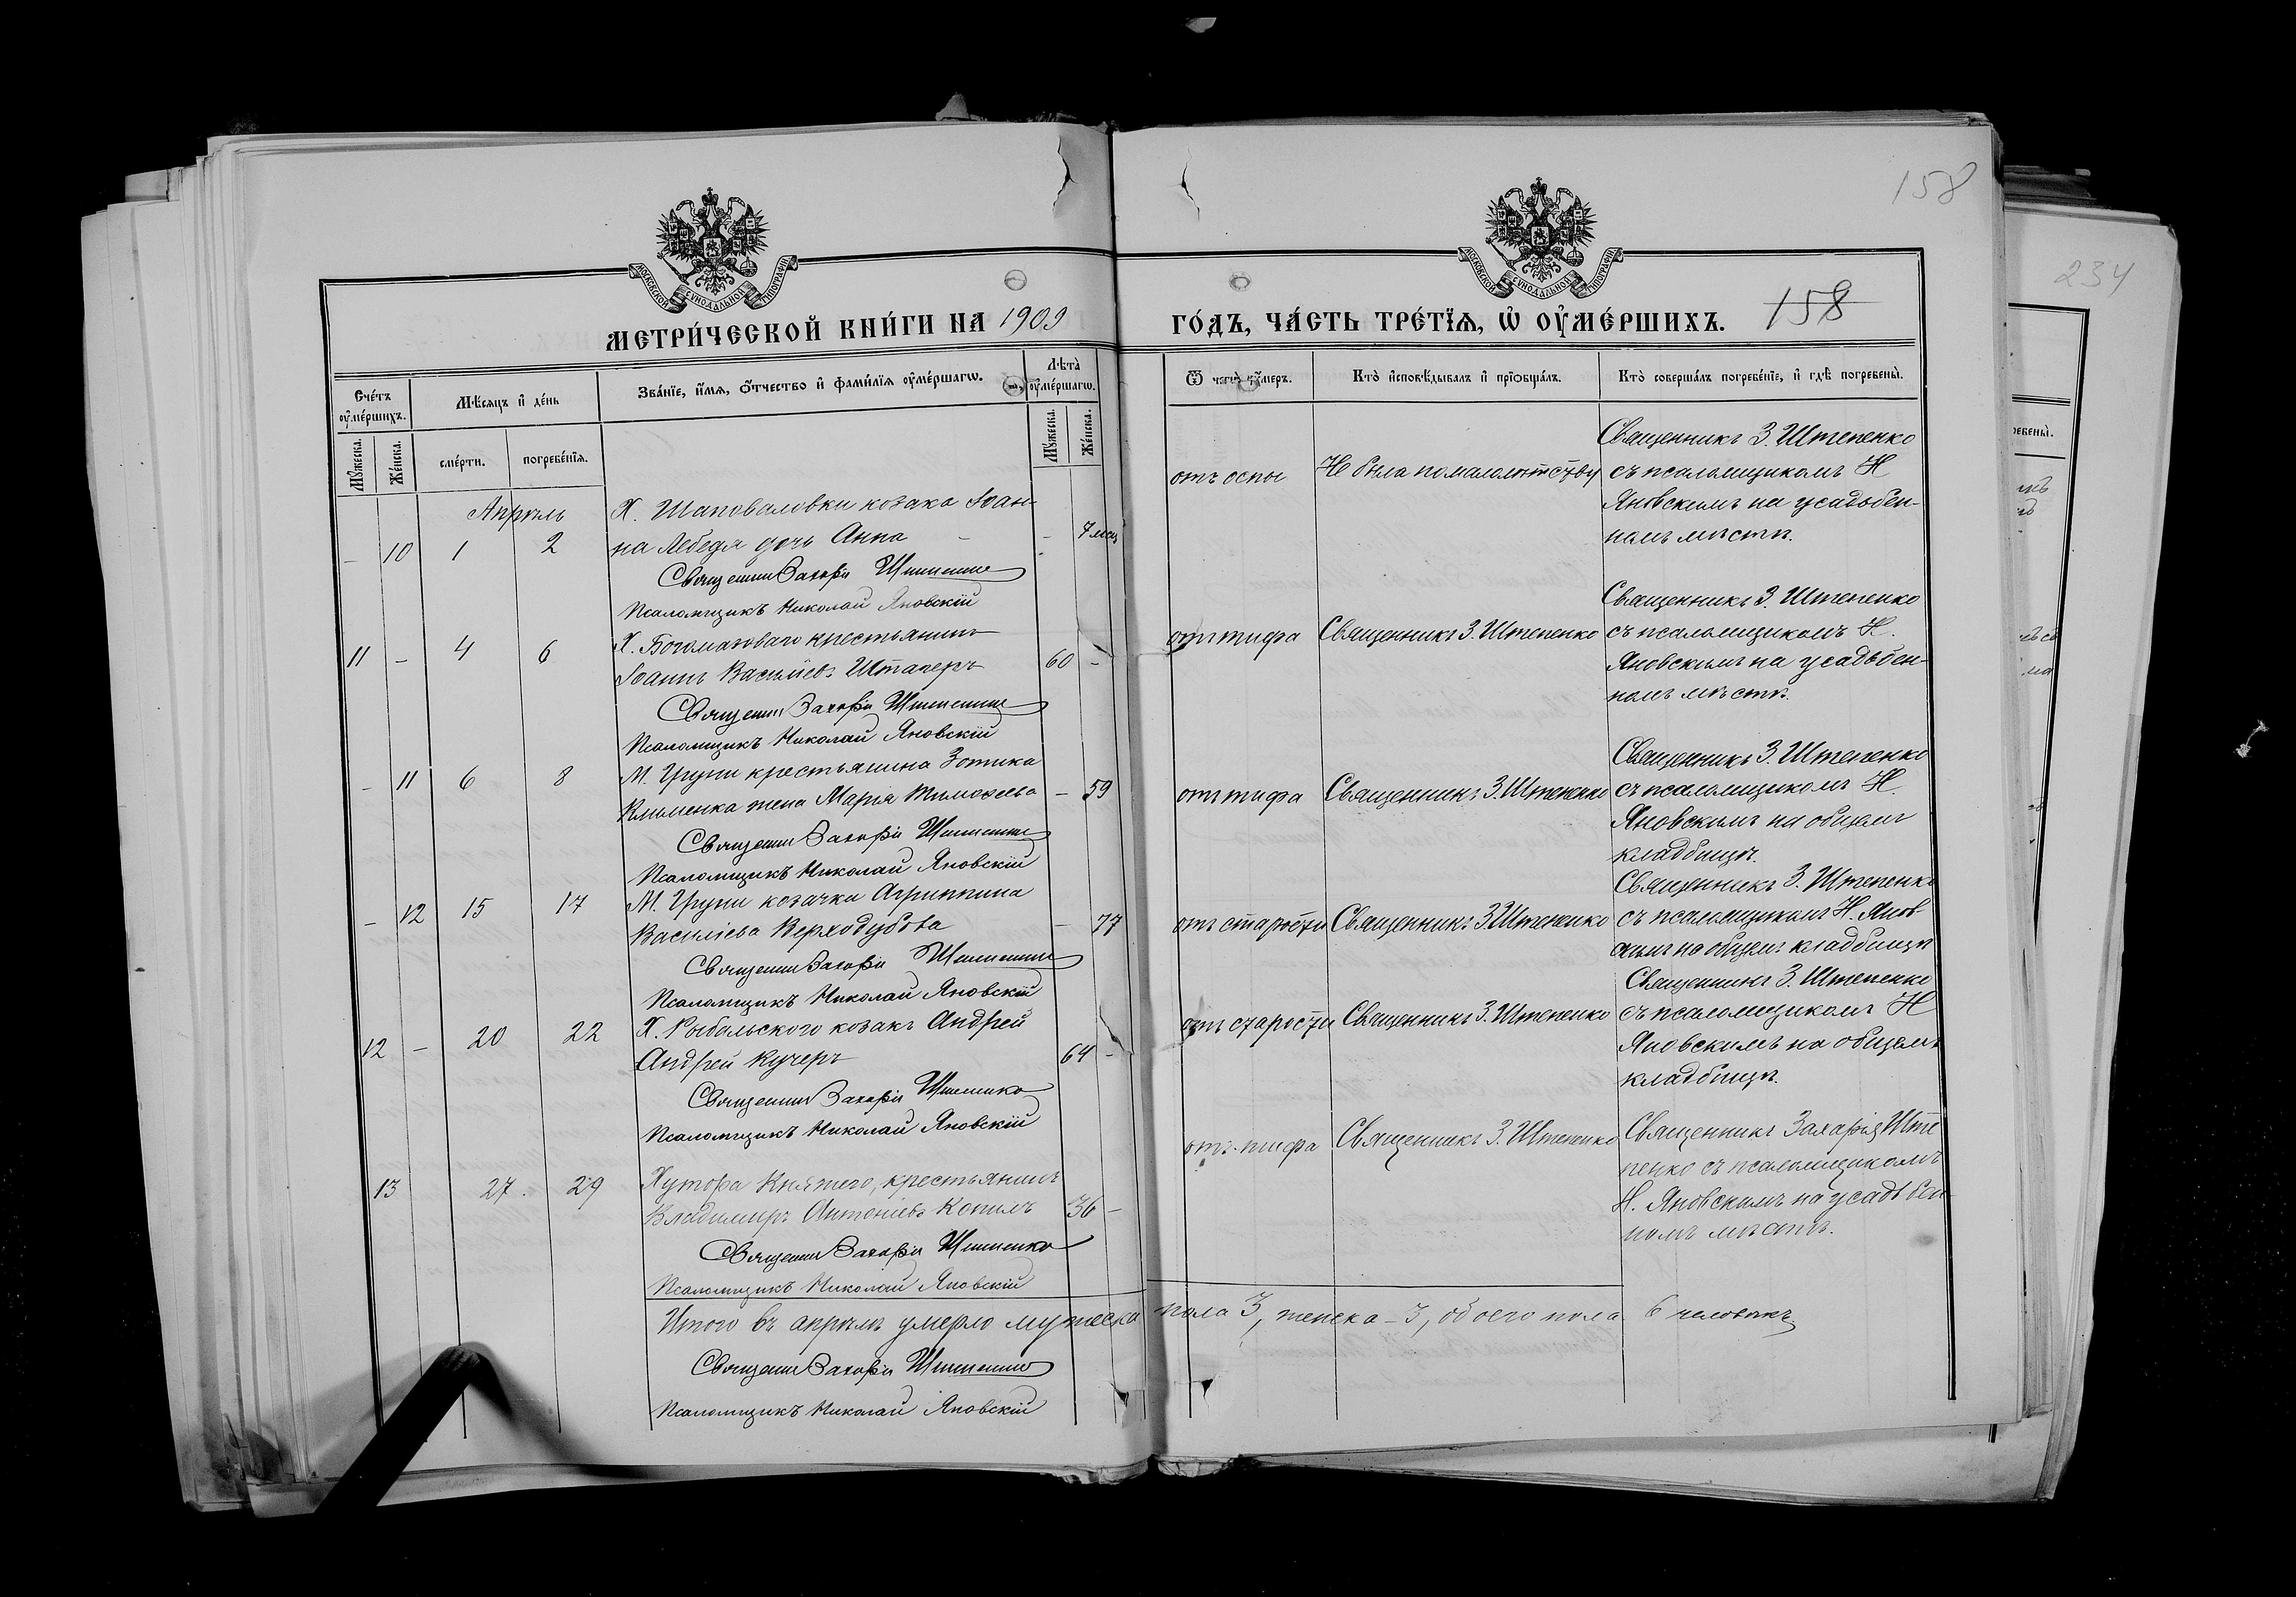 158
234
МОСКОВСКОЙ СѴНОДАЛЬНОЙ ТИПОГРАФІИ
МОСКОВСКОЙ СѴНОДАЛЬНОЙ ТИПОГРАФІИ
МЕТРИ́ЧЕСКОЙ КНИ́ГИ НА 1909
ГО́ДЪ, ЧА́СТЬ ТРЕ́ТЇѦ, Ѡ҆ ОУ҆МЕ́РШИХЪ. 158
Сче́тъ оу҆ме́ршихъ.
Мѣ́сѧцъ и҆ де́нь
Зва́нїе, и҆́мѧ, ѻ҆́тчество и҆ фами́лїѧ оу҆ме́ршагѡ.
Лѣ́та оу҆ме́ршагѡ.
Мꙋ́жеска.
Же́нска.
сме́рти.
погребе́нїѧ.
Мꙋ́жеска.
Же́нска.
Ѿ чегѡ̀ оу҆́меръ.
Кто̀ и҆сповѣ́дывалъ и҆ прїѡбща́лъ.
Кто̀ соверша́лъ погребе́нїе, и҆ гдѣ̀ погребены̀.
Апрѣль
Х. Шаповаловки козака Іоан-
- 10 1 2 на Лебедя дочь Анна - - 7 мѣс
Священникъ Захарій Штепенко
Псаломщикъ Николай Яновскій
отъ оспы
Не была по малолѣтству
Священникъ З. Штепенко
съ псаломщикомъ Н
Яновскимъ на усадьбен-
номъ мѣстѣ.
Х. Богоматоваго крестьянинъ
11 - 4 6 Іоаннъ Васильевъ Штаперъ 60 -
Священникъ Захарій Штепенко
Псаломщикъ Николай Яновскій
отъ тифа
Священникъ З. Штепенко
Священникъ З. Штепенко
съ псаломщикомъ Н.
Яновскимъ на усадьбен-
номъ мѣстѣ.
- 11 6 8 М. Груни крестьянина Зотика
Клименка жена Марія Тимоѳеева - 59
Священникъ Захарій Штепенко
Псаломщикъ Николай Яновскій
отъ тифа
Священникъ З. Штепенко
Священникъ З. Штепенко
съ псаломщикомъ Н.
Яновскимъ на общемъ
кладбищѣ.
- 12 15 17 М. Груни козачки Агриппина
Василіева Верходубова - 77
Священникъ Захарій Штепенко
Псаломщикъ Николай Яновскій
отъ старости
Священникъ З. Штепенко
Священникъ З. Штепенко
съ псаломщикомъ Н. Янов-
скимъ на общемъ кладбищѣ
12 - 20 22 Х. Рыбальского козакъ Андрей
Андрей Кучеръ 64 -
Священникъ Захарій Штепенко
Псаломщикъ Николай Яновскій
отъ старости
Священникъ З. Штепенко
Священникъ З. Штепенко
съ псаломщикомъ Н
Яновскимъ на общемъ
кладбищѣ.
13 27. 29 Хутора Княжего, крестьянинъ
Владимиръ Антоніевъ Копилъ 36 -
Священникъ Захарій Штепенко
Псаломщикъ Николай Яновскій
отъ тифа
Священникъ З. Штепенко
Священникъ Захарія Ште
пенко съ псаломщикомъ
Н. Яновскимъ на усадьбен-
номъ мѣстѣ.
Итого въ апрѣлѣ умерло мужеска пола 3, женска - 3, обоего пола 6 человѣкъ
Священникъ Захарій Штепенко
Псаломщикъ Николай Яновскій